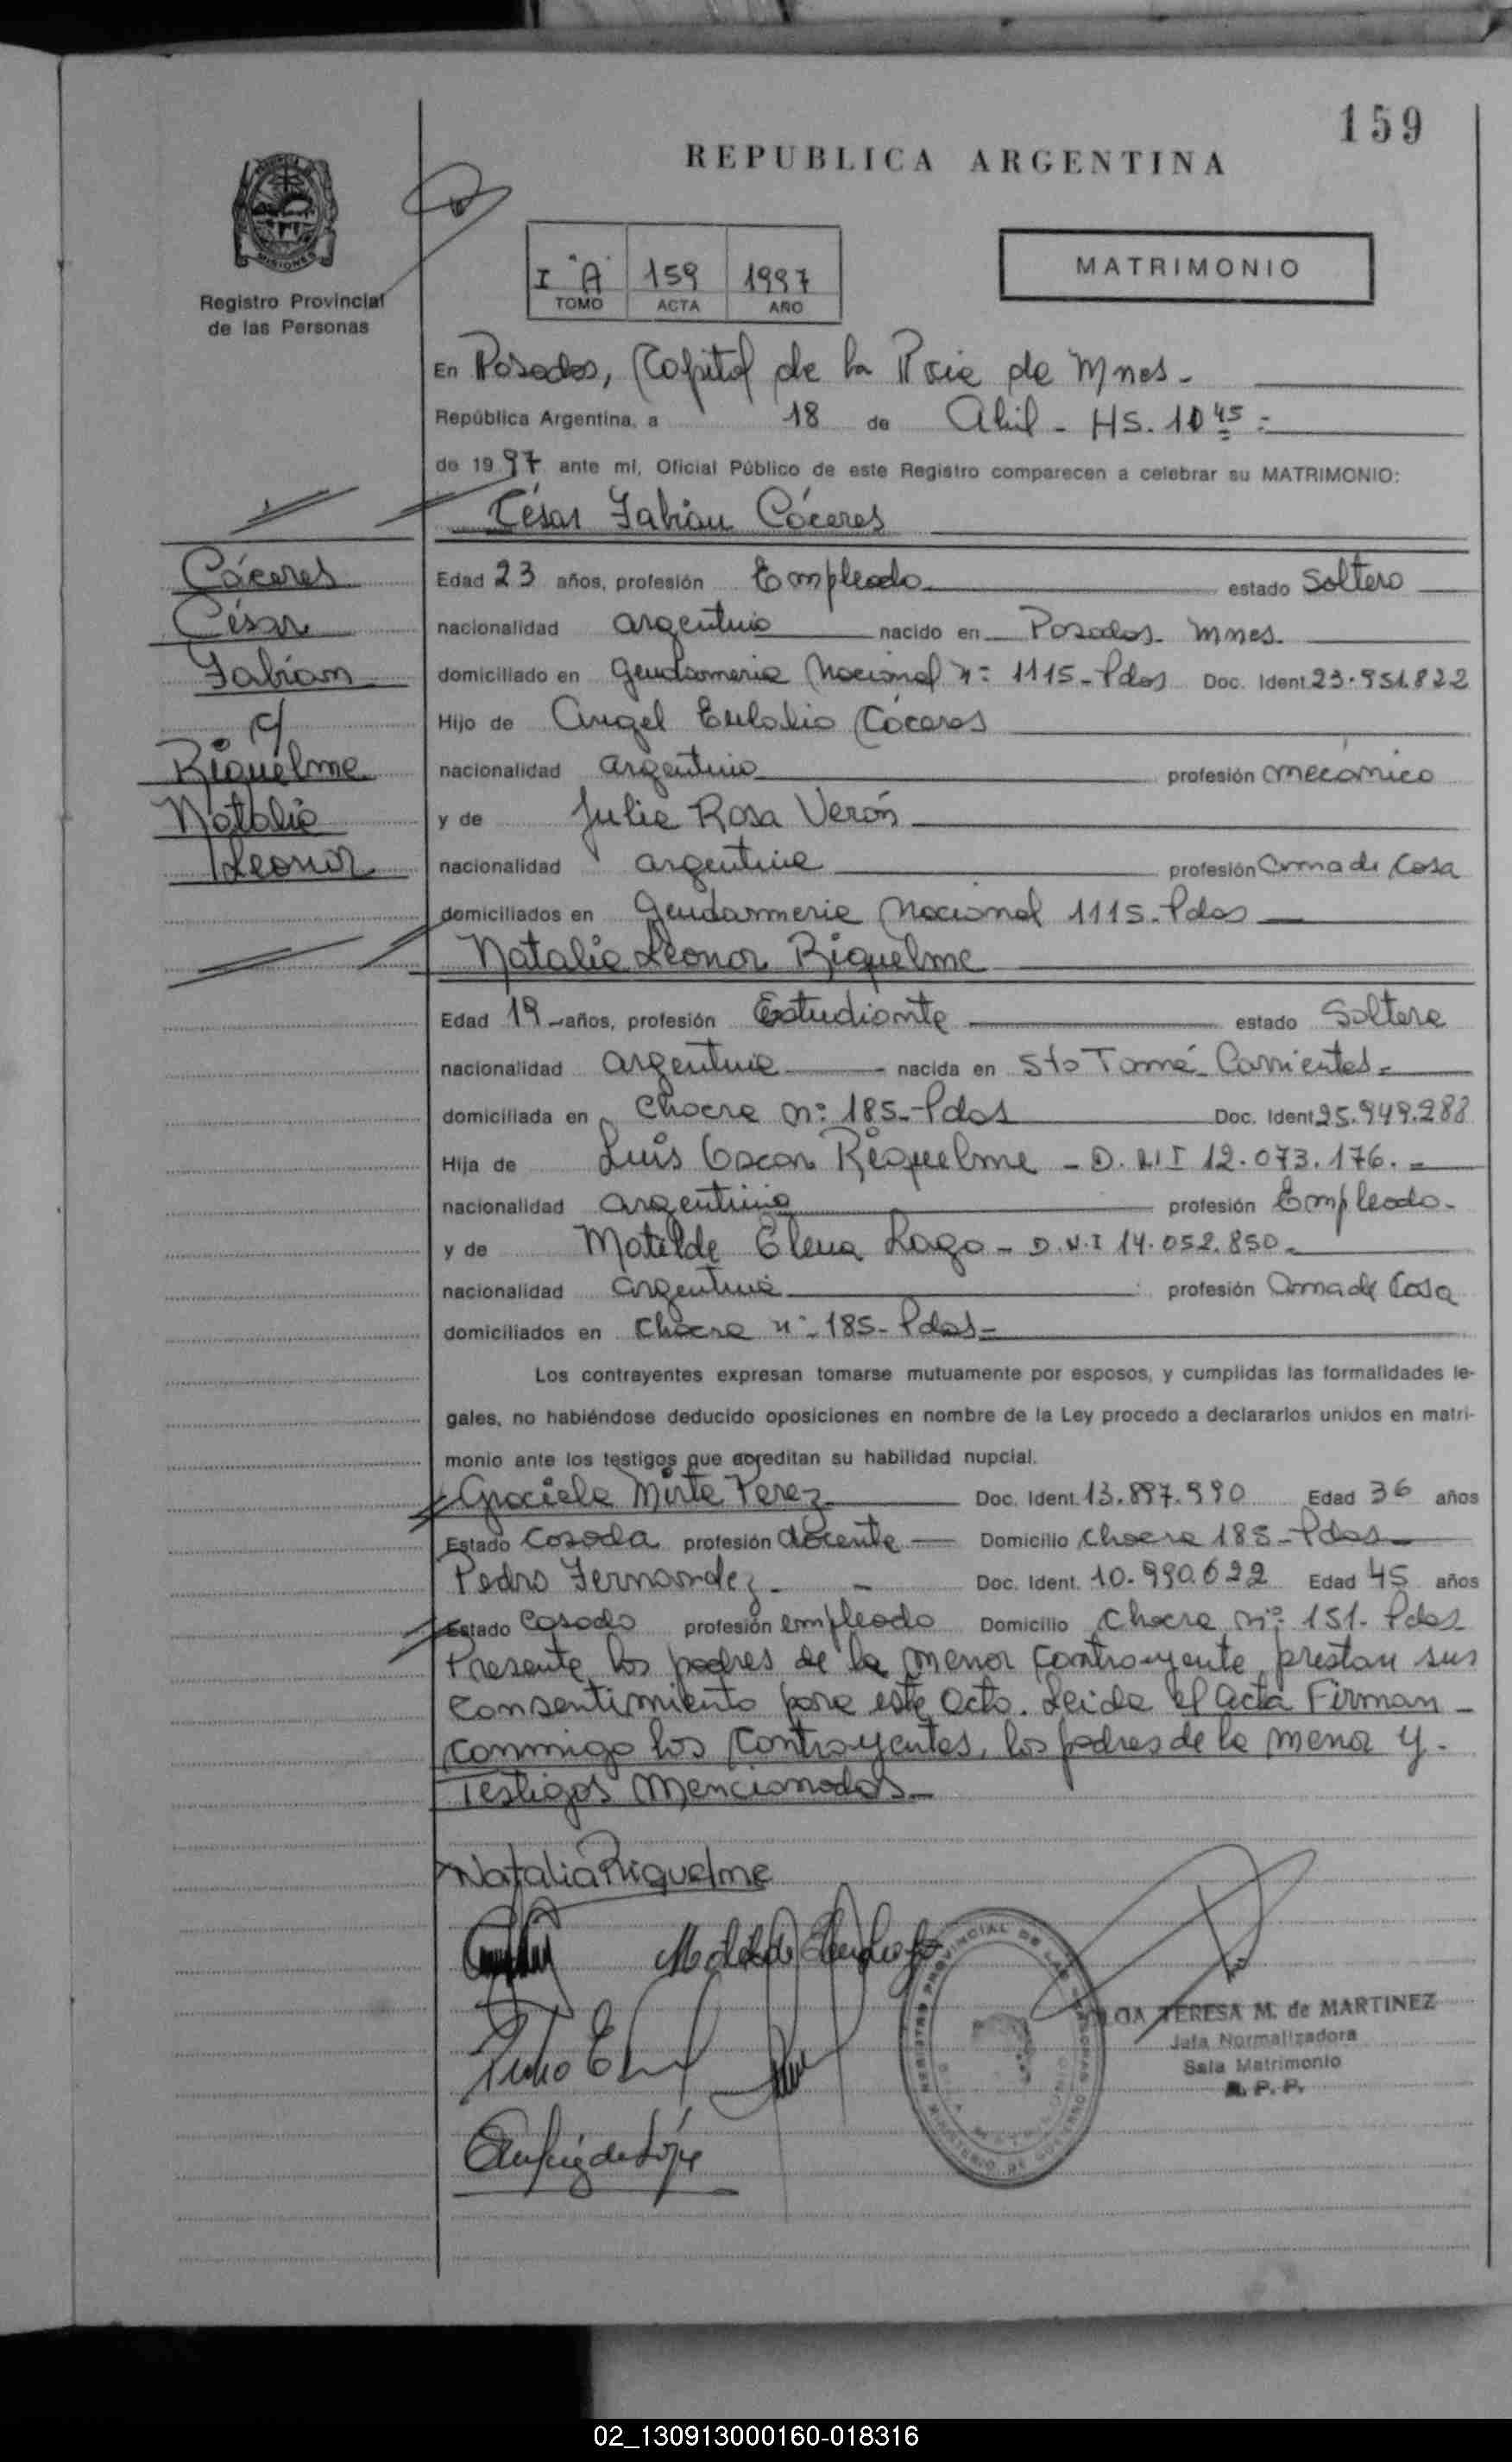 159
REPUBLICA ARGENTINA
MISIONES
Registro Provincial
de las Personas
I "A" 159 1997
TOMO ACTA AÑO
MATRIMONIO
En Posadas, Capital de la Pcia de Mnes.
República Argentina, a 18 de Abril - HS. 10 45 =
de 1997 ante mí, Oficial Público de este Registro comparecen a celebrar su MATRIMONIO:
César Fabián Cáceres
Cáceres
César
Fabián
c/
Riquelme
Natalia
Leonor
Edad 23 años, profesión Empleado estado Soltero
nacionalidad argentino nacido en Posadas. Mnes.
domiciliado en Gendarmeria Nacional nº 1115 - Pdas Doc. Ident. 23.951.822
Hijo de Angel Eulalio Cáceres
nacionalidad argentino profesión mecánico
y de Julia Rosa Verón
nacionalidad argentina profesión ama de Casa
domiciliados en Gendarmeria Nacional 1115 - Pdas
Natalia Leonor Riquelme
Edad 19 años, profesión Estudiante estado Soltera
nacionalidad argentina nacida en Sto Tomé - Corrientes -
domiciliada en Chacra nº 185 - Pdas Doc. Ident 25.949.288
Hija de Luis Oscar Riquelme - D.N.I 12.073.176. -
nacionalidad argentino profesión Empleado -
y de Matilde Elena Lago - D.N.I 14.052.850 -
nacionalidad argentina profesión ama de Casa
domiciliados en Chacra nº 185 - Pdas -
Los contrayentes expresan tomarse mutuamente por esposos, y cumplidas las formalidades le-
gales, no habiéndose deducido oposiciones en nombre de la Ley procedo a declararlos unidos en matri-
monio ante los testigos que acreditan su habilidad nupcial.
Graciela Mirta Perez Doc. Ident. 13.897.990 Edad 36 años
Estado Casada profesión docente Domicilio Chacra 185 - Pdas -
Pedro Fernandez - Doc. Ident. 10.990.622 Edad 45 años
Estado Casado profesión empleado Domicilio Chacra nº 151 - Pdas
Presente los padres de la menor contrayente prestan sus
consentimiento para este acto. Leida el acta Firman -
conmigo los contrayentes, los padres de la menor y -
testigos mencionados -
Natalia Riquelme
REGISTRO PROVINCIAL DE LAS PERSONAS
MINISTERIO DE GOBIERNO
TERESA M. de MARTINEZ
Jefa Normalizadora
Sala Matrimonio
R. P. P.
02_130913000160-018316